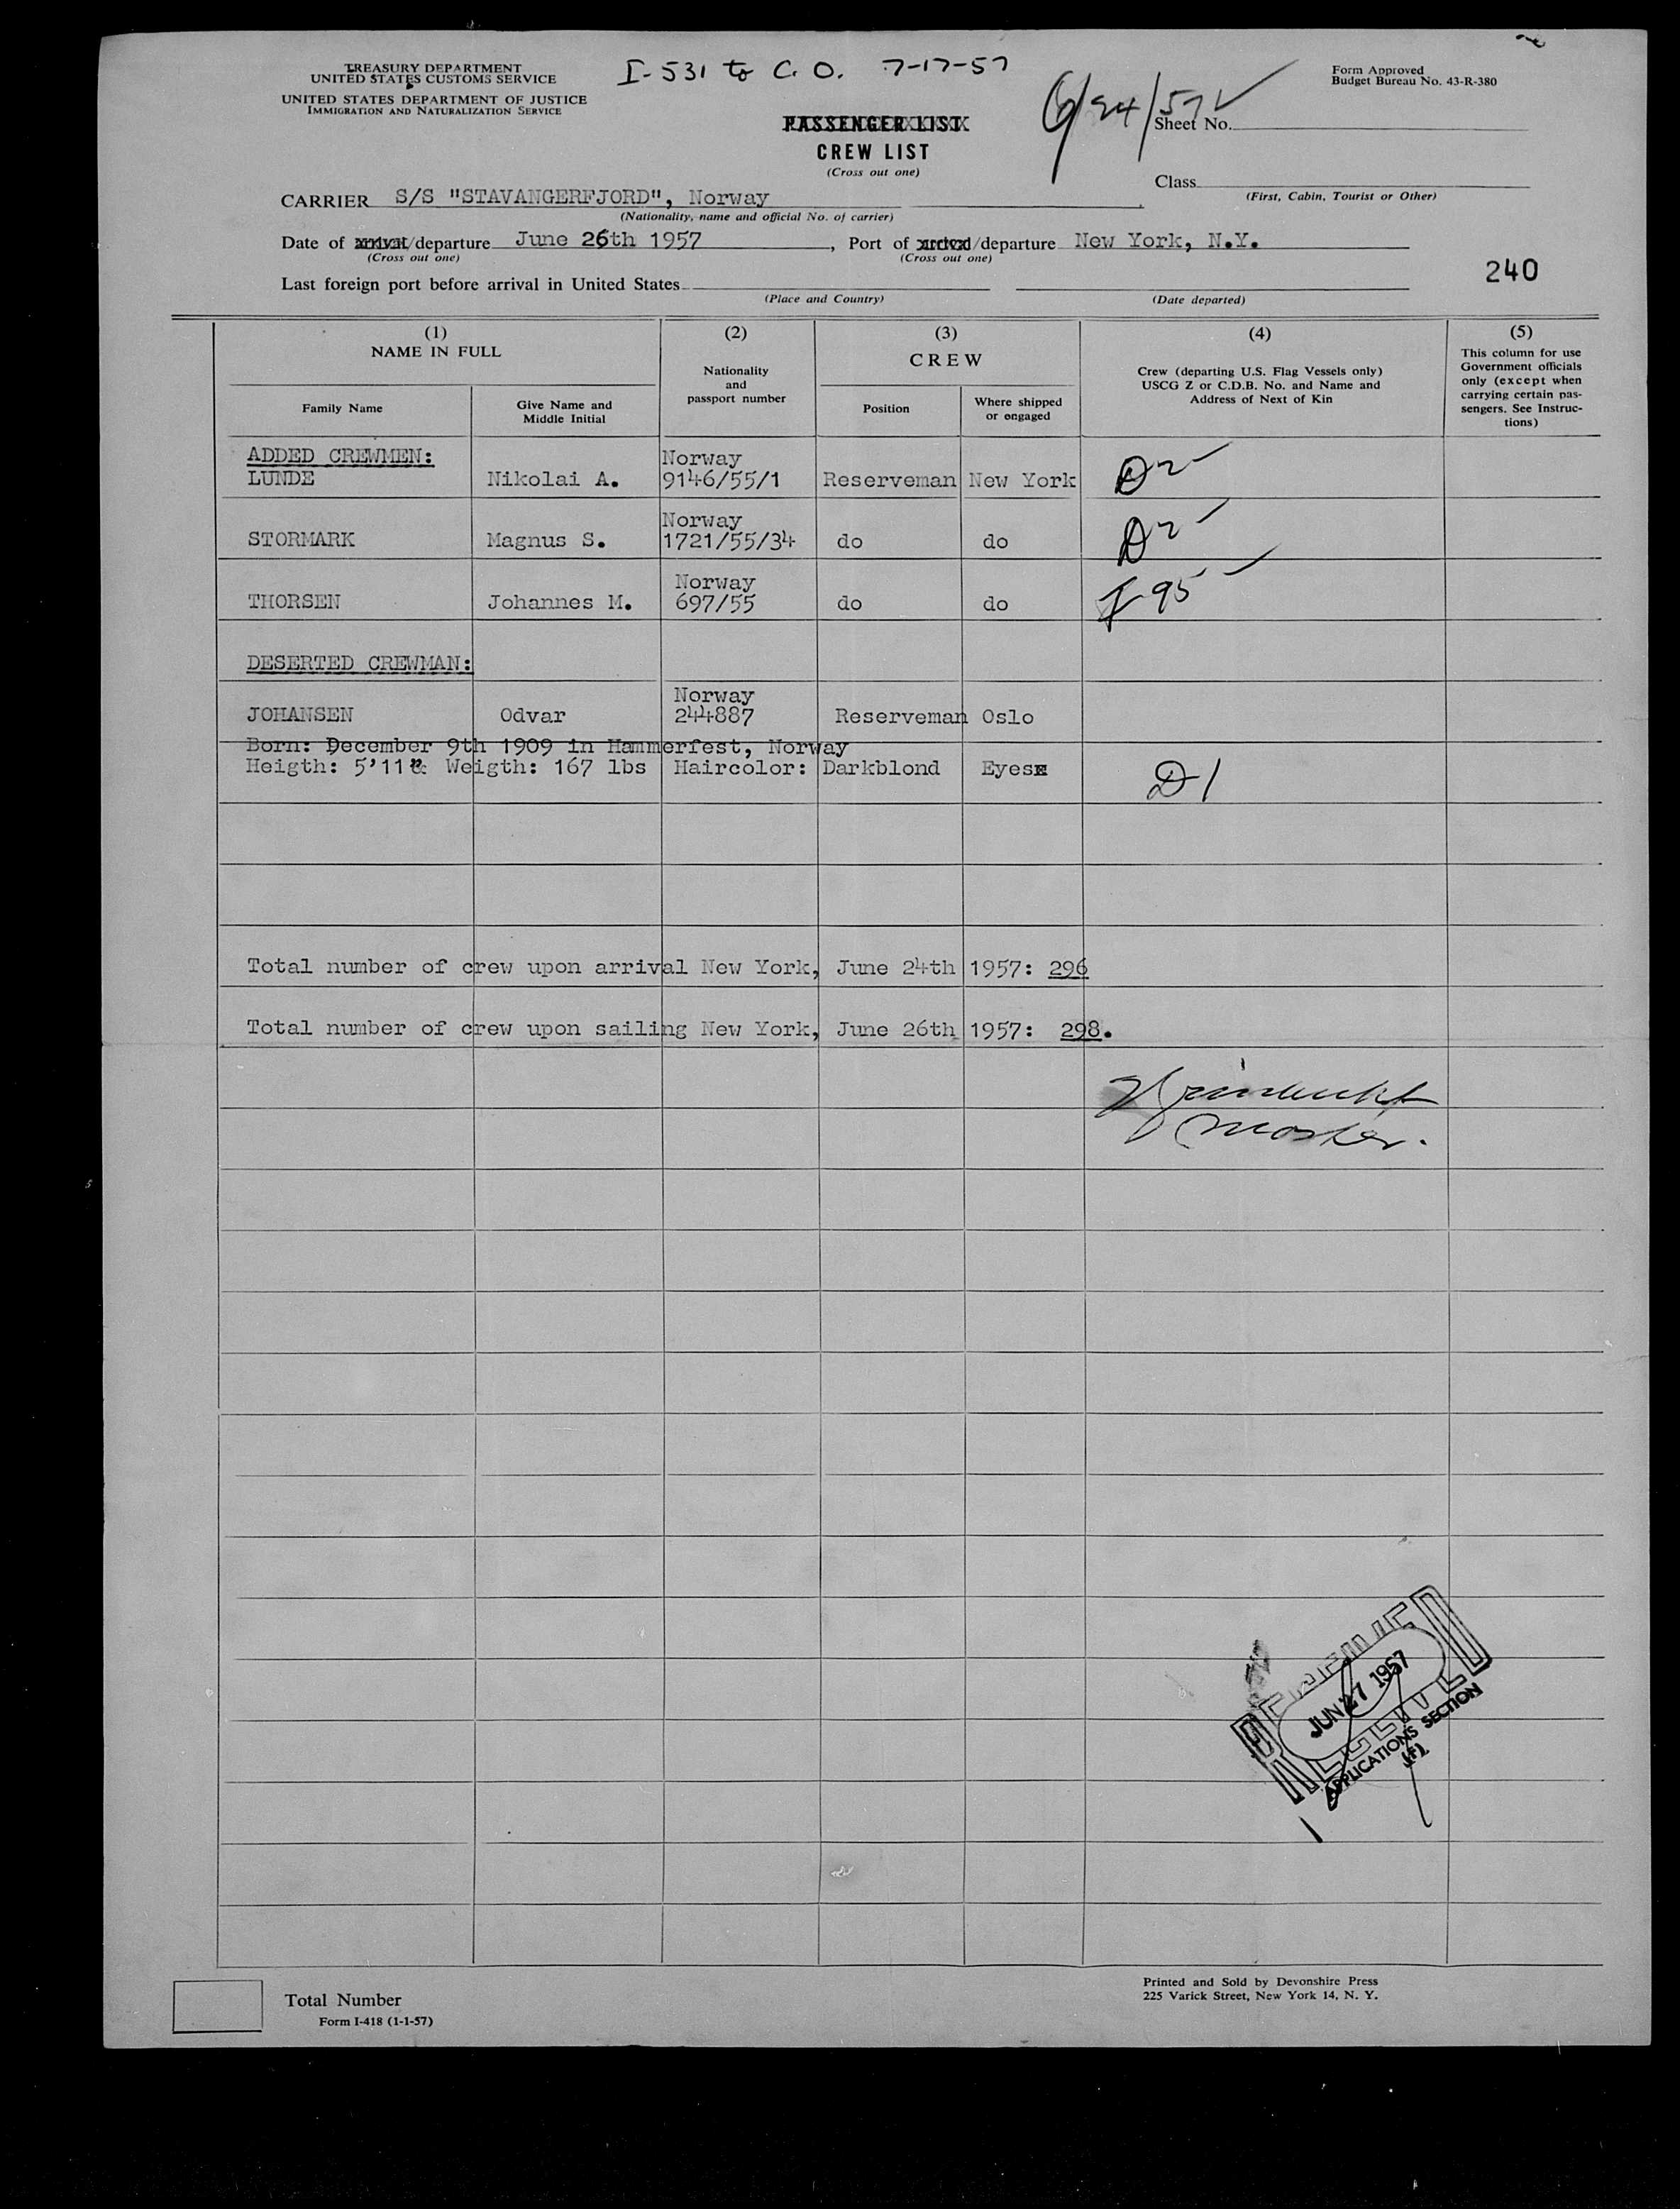 TREASURY DEPARTMENT
UNITED STATES CUSTOMS SERVICE
UNITED STATES DEPARTMENT OF JUSTICE
IMMIGRATION AND NATURALIZATION SERVICE
I-531 to C.O. 7-17-57
6/24/57
Form Approved
Budget Bureau No. 43-R-380
PASSENGER LIST
CREW LIST
(Cross out one)
Sheet No.
Class
(First, Cabin, Tourist or Other)
CARRIER S/S "STAVANGERFJORD", Norway
(Nationality, name and official No. of carrier)
Date of arrival/departure June 26th 1957, Port of arrival/departure New York, N.Y.
(Cross out one) (Cross out one)
240
Last foreign port before arrival in United States
(Place and Country) (Date departed)
(1) (2) (3) (4) (5)
NAME IN FULL
Family Name
Give Name and
Middle Initial
Nationality
and
passport number
CREW
Position
Where shipped
or engaged
Crew (departing U.S. Flag Vessels only)
USCG Z or C.D.B. No. and Name and
Address of Next of Kin
This column for use
Government officials
only (except when
carrying certain pas-
sengers. See Instruc-
tions)
ADDED CREWMEN: Norway
LUNDE Nikolai A. 9146/55/1 Reserveman New York D2
Norway
STORMARK Magnus S. 1721/55/34 do do D2
Norway
THORSEN Johannes M. 697/55 do do I 95
DESERTED CREWMAN:
Norway
JOHANSEN Odvar 244887 Reserveman Oslo
Born: December 9th 1909 in Hammerfest, Norway
Heigth: 5'11" Weigth: 167 lbs Haircolor: Darkblond Eyes
D1
Total number of crew upon arrival New York, June 24th 1957: 296
Total number of crew upon sailing New York, June 26th 1957: 298.
Master.
RECEIVED
JUN 27 1957
APPLICATIONS SECTION
(F)
Total Number
Form I-418 (1-1-57)
Printed and Sold by Devonshire Press
225 Varick Street, New York 14, N. Y.